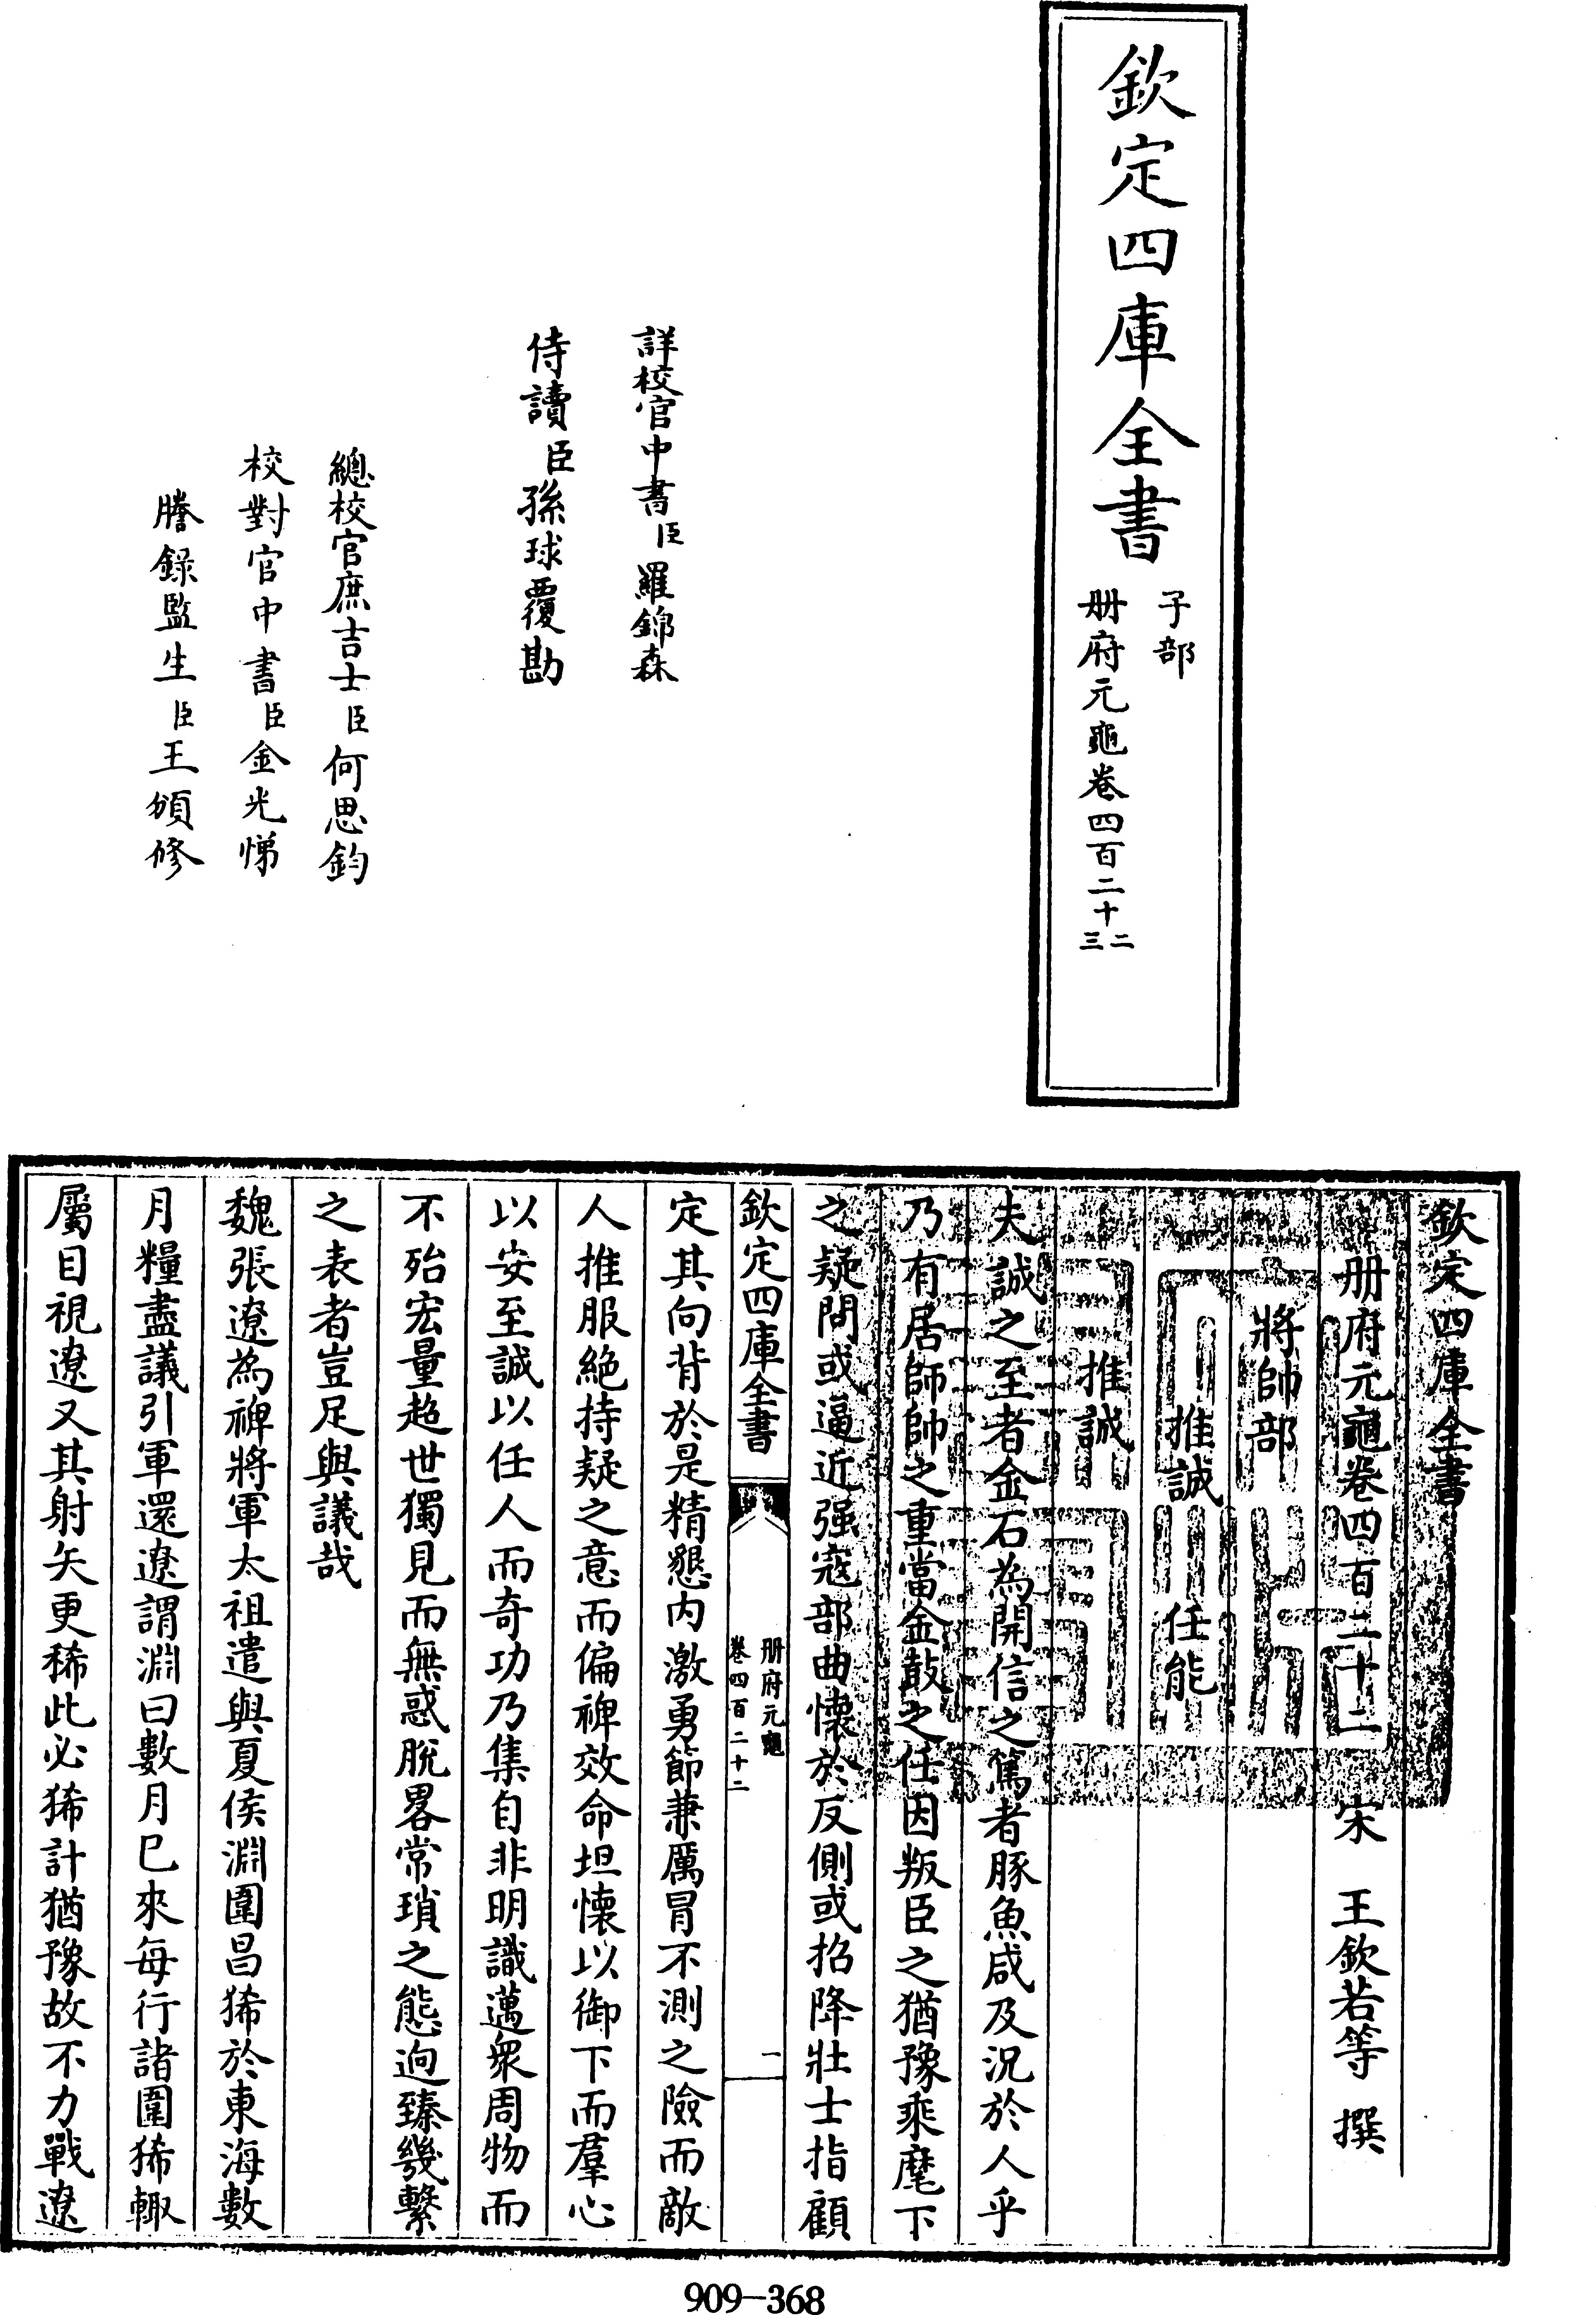 欽定四庫全書
子部
册府元龜卷四百二十二
三
詳校官中書臣羅錦森
侍讀臣孫球覆勘
總校官庶吉士臣何思鈞
校對官中書臣金光悌
謄錄監生臣王頒修
欽定四庫全書
册府元龜卷四百二十二 宋 王欽若等 撰
將帥部
推誠 任能
推誠
夫誠之至者金石為開信之篤者豚魚咸及況於人乎
乃有居師帥之重當金鼓之任因叛臣之猶豫乘麾下
之疑問或逼近强寇部曲懷於反側或招降壯士指顧
欽定四庫全書
册府元龜
卷四百二十二
一
定其向背於是精懇内激勇節兼厲冒不測之險而敵
人推服絶持疑之意而偏裨效命坦懷以御下而羣心
以安至誠以任人而奇功乃集自非明識邁衆周物而
不殆宏量超世獨見而無惑脫畧常瑣之態逈臻幾繫
之表者豈足與議哉
魏張遼為裨將軍太祖遣與夏侯淵圍昌狶於東海數
月糧盡議引軍還遼謂淵曰數月已來每行諸圍狶輙
屬目視遼又其射矢更稀此必狶計猶豫故不力戰遼
909-368